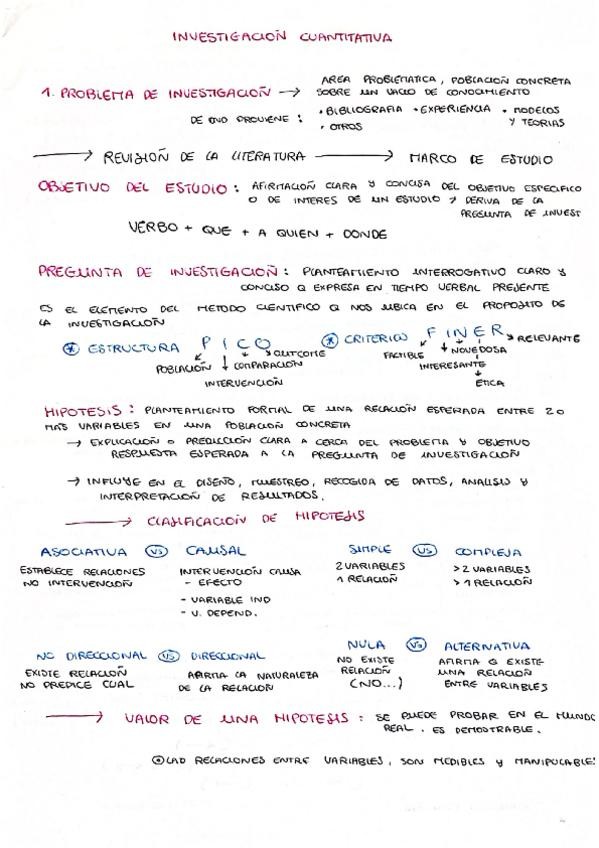 INVESTIGACION CUANTITATIVA
1. PROBLEMA DE INVESTIGACION → AREA PROBLEMATICA, POBLACION CONCRETA
SOBRE UN VACIO DE CONOCIMIENTO
DE DND PROVIENE: • BIBLIOGRAFIA • EXPERIENCIA • MODELOS Y TEORIAS
• OTROS
→ REVISION DE LA LITERATURA → MARCO DE ESTUDIO
OBJETIVO DEL ESTUDIO: AFIRMACION CLARA Y CONCISA DEL OBJETIVO ESPECIFICO
O DE INTERES DE UN ESTUDIO Y DERIVA DE LA
PREGUNTA DE INVEST
VERBO + QUE + A QUIEN + DONDE
PREGUNTA DE INVESTIGACION: PLANTEAMIENTO INTERROGATIVO CLARO Y
CONCISO Q EXPRESA EN TIEMPO VERBAL PRESENTE
ES EL ELEMENTO DEL METODO CIENTIFICO Q NOS UBICA EN EL PROPOSITO DE
LA INVESTIGACION
* ESTRUCTURA PICO * CRITERIOS FINER
POBLACION COMPARACION OUTCOME FACTIBLE NOVEDOSA RELEVANTE
INTERVENCION INTERESANTE
ETICA
HIPOTESIS: PLANTEAMIENTO FORMAL DE UNA RELACION ESPERADA ENTRE 2 O
MAS VARIABLES EN UNA POBLACION CONCRETA
→ EXPLICACION O PREDICCION CLARA A CERCA DEL PROBLEMA Y OBJETIVO
RESPUESTA ESPERADA A LA PREGUNTA DE INVESTIGACION
→ INFLUYE EN EL DISEÑO, MUESTREO, RECOGIDA DE DATOS, ANALISIS Y
INTERPRETACION DE RESULTADOS.
→ CLASIFICACION DE HIPOTESIS
ASOCIATIVA VS CAUSAL SIMPLE VS COMPLEJA
ESTABLECE RELACIONES INTERVENCION CAUSA 2 VARIABLES > 2 VARIABLES
NO INTERVENCION - EFECTO 1 RELACION > 1 RELACION
- VARIABLE IND
- V. DEPEND.
NO DIRECCIONAL VS DIRECCIONAL NULA VS ALTERNATIVA
EXISTE RELACION AFIRMA LA NATURALEZA NO EXISTE AFIRMA Q EXISTE
NO PREDICE CUAL DE LA RELACION RELACION UNA RELACION
(NO...) ENTRE VARIABLES
→ VALOR DE UNA HIPOTESIS: SE PUEDE PROBAR EN EL MUNDO
REAL. ES DEMOSTRABLE.
RELACIONES ENTRE VARIABLES, SON MEDIBLES Y MANIPULABLES